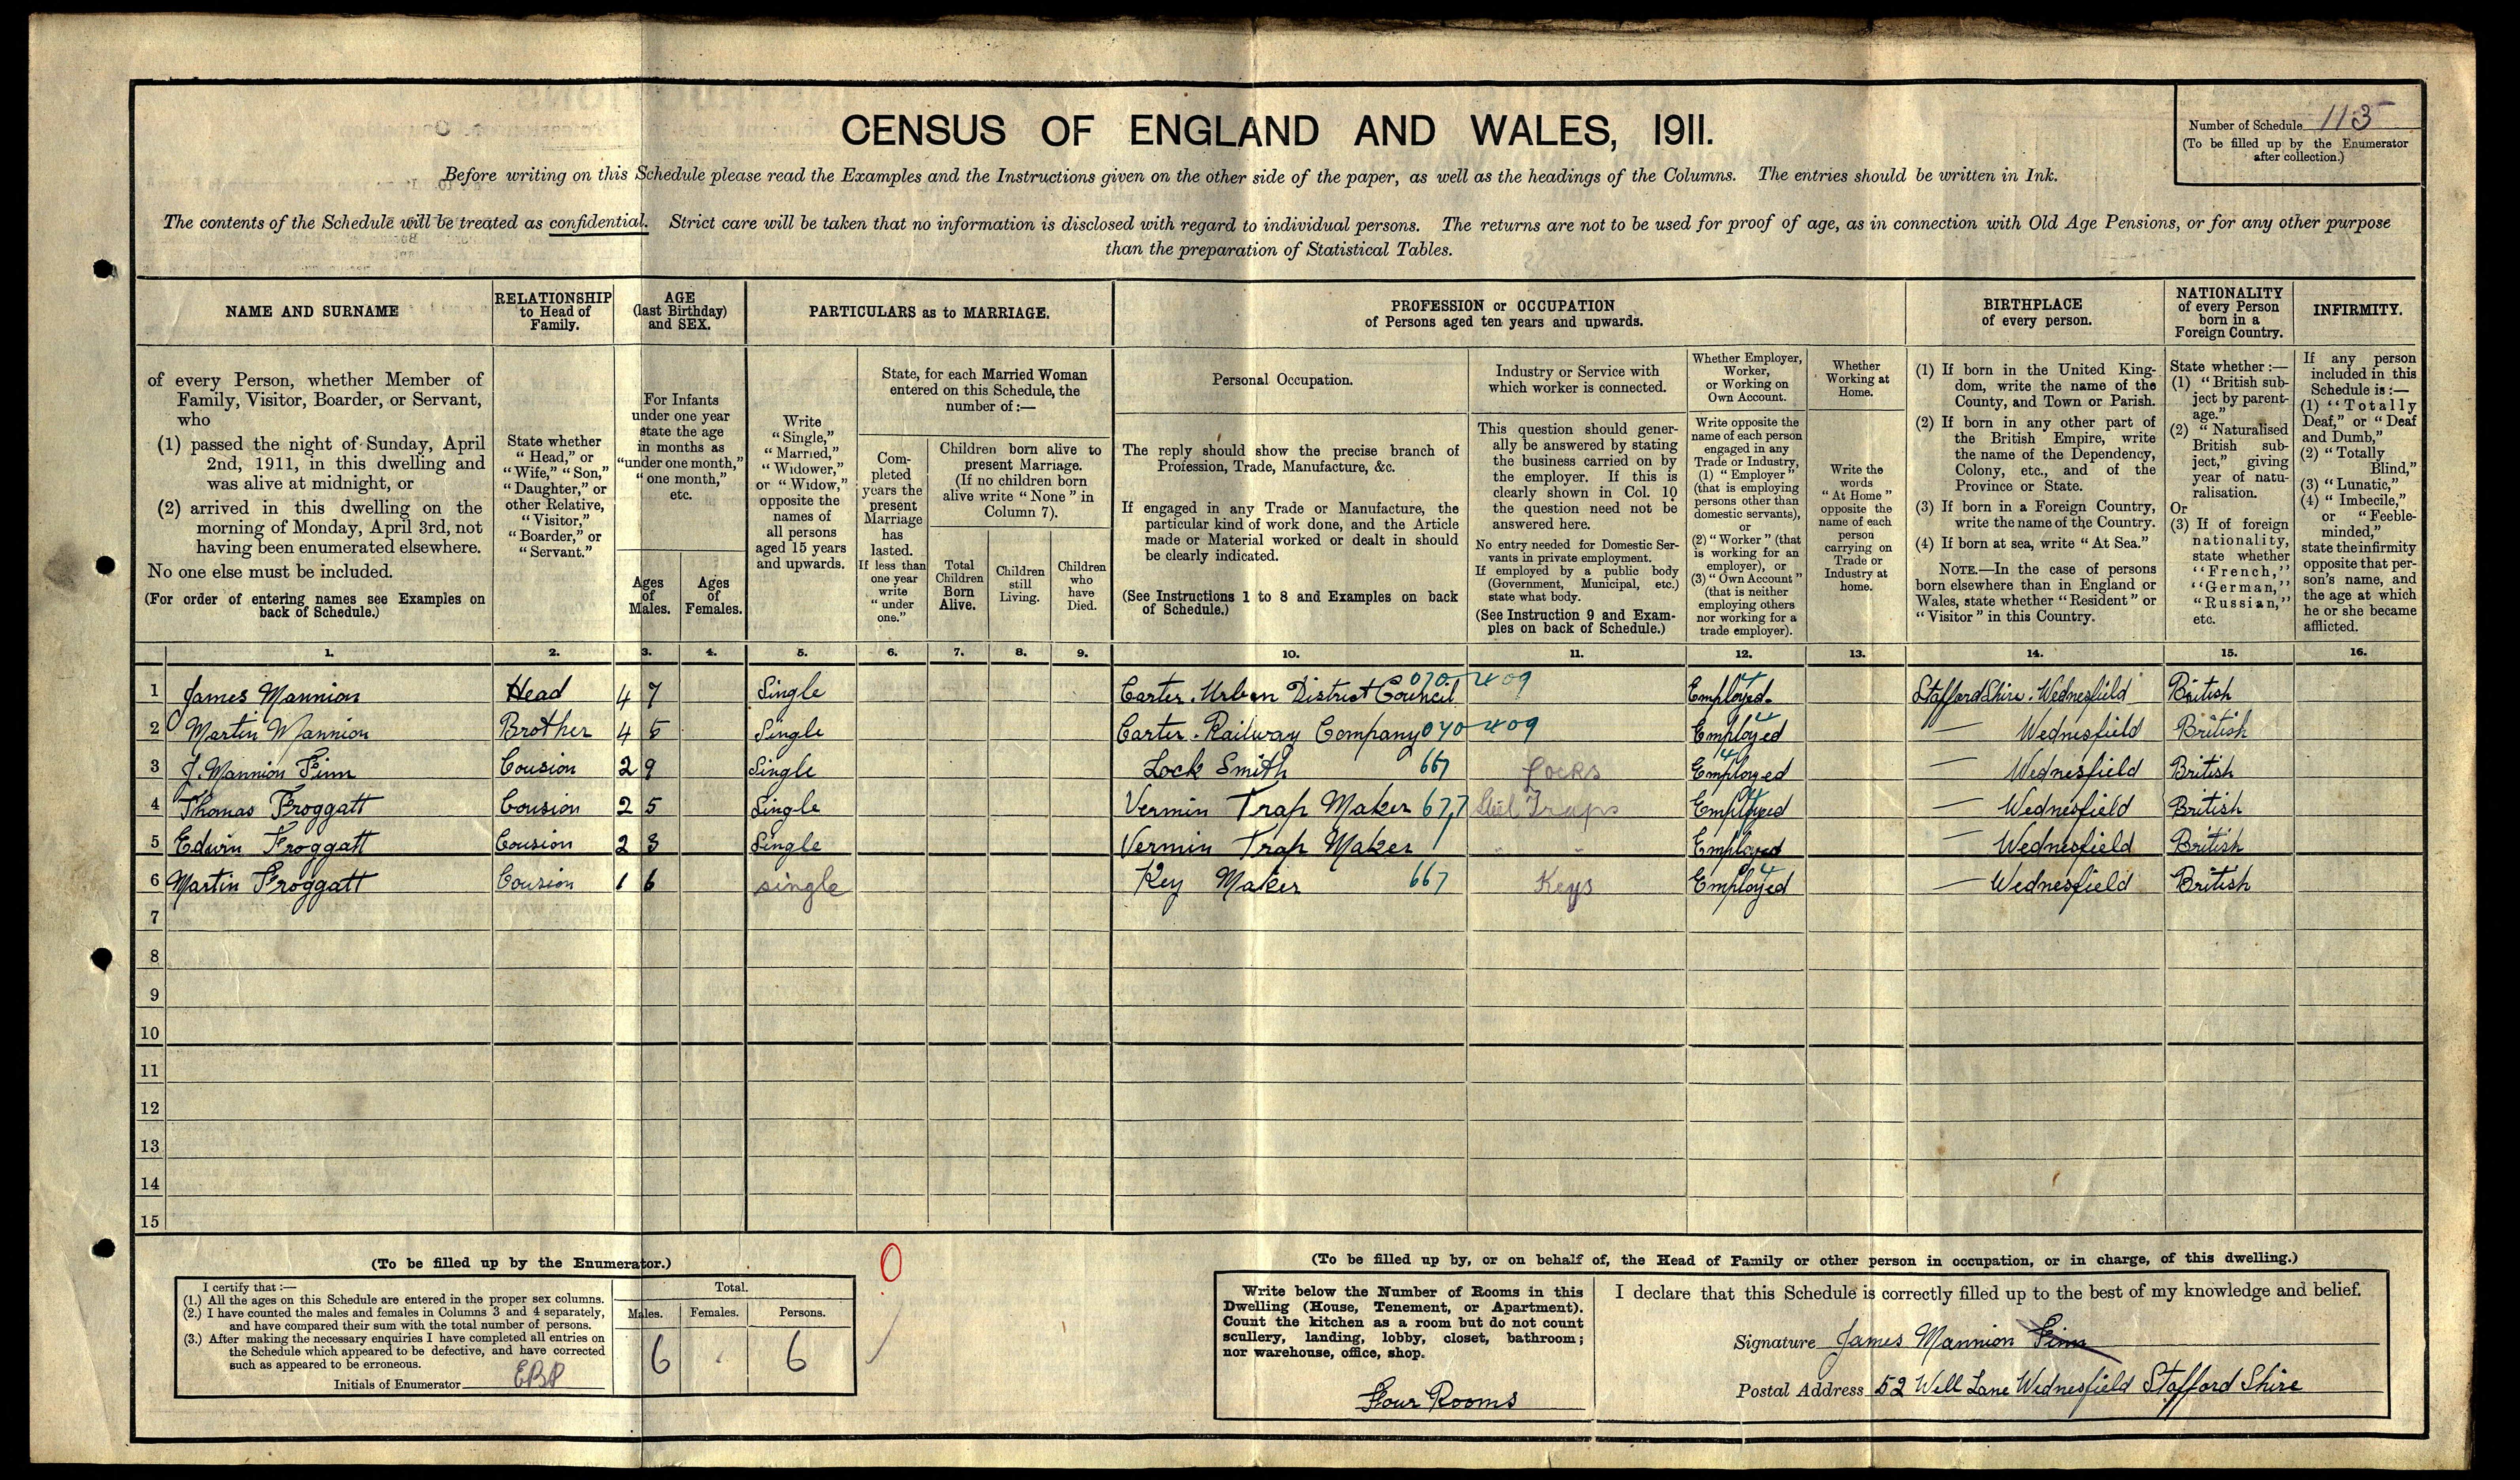 CENSUS OF ENGLAND AND WALES, 1911.
Number of Schedule 113
(To be filled up by the Enumerator
after collection.)
Before writing on this Schedule please read the Examples and the Instructions given on the other side of the paper, as well as the headings of the Columns. The entries should be written in Ink.
The contents of the Schedule will be treated as confidential. Strict care will be taken that no information is disclosed with regard to individual persons. The returns are not to be used for proof of age, as in connection with Old Age Pensions, or for any other purpose
than the preparation of Statistical Tables.
NAME AND SURNAME
of every Person, whether Member of
Family, Visitor, Boarder, or Servant,
who
(1) passed the night of Sunday, April
2nd, 1911, in this dwelling and
was alive at midnight, or
(2) arrived in this dwelling on the
morning of Monday, April 3rd, not
having been enumerated elsewhere.
No one else must be included.
(For order of entering names see Examples on
back of Schedule.)
RELATIONSHIP
to Head of
Family.
State whether
"Head," or
"Wife," "Son,"
"Daughter," or
other Relative,
"Visitor,"
"Boarder," or
"Servant."
AGE
(last Birthday)
and SEX.
For Infants
under one year
state the age
in months as
"under one month,"
"one month,"
etc.
Ages
of
Males.
Ages
of
Females.
PARTICULARS as to MARRIAGE.
Write
"Single,"
"Married,"
"Widower,"
or "Widow,"
opposite the
names of
all persons
aged 15 years
and upwards.
State, for each Married Woman
entered on this Schedule, the
number of :—
Com-
pleted
years the
present
Marriage
has
lasted.
If less than
one year
write
"under
one."
Children born alive to
present Marriage.
(If no children born
alive write "None" in
Column 7).
Total
Children
Born
Alive.
Children
still
Living.
Children
who
have
Died.
PROFESSION or OCCUPATION
of Persons aged ten years and upwards.
Personal Occupation.
The reply should show the precise branch of
Profession, Trade, Manufacture, &c.
If engaged in any Trade or Manufacture, the
particular kind of work done, and the Article
made or Material worked or dealt in should
be clearly indicated.
(See Instructions 1 to 8 and Examples on back
of Schedule.)
Industry or Service with
which worker is connected.
This question should gener-
ally be answered by stating
the business carried on by
the employer. If this is
clearly shown in Col. 10
the question need not be
answered here.
No entry needed for Domestic Ser-
vants in private employment.
If employed by a public body
(Government, Municipal, etc.)
state what body.
(See Instruction 9 and Exam-
ples on back of Schedule.)
Whether Employer,
Worker,
or Working on
Own Account.
Write opposite the
name of each person
engaged in any
Trade or Industry,
(1) "Employer"
(that is employing
persons other than
domestic servants),
or
(2) "Worker" (that
is working for an
employer), or
(3) "Own Account"
(that is neither
employing others
nor working for a
trade employer).
Whether
Working at
Home.
Write the
words
"At Home"
opposite the
name of each
person
carrying on
Trade or
Industry at
home.
BIRTHPLACE
of every person.
(1) If born in the United King-
dom, write the name of the
County, and Town or Parish.
(2) If born in any other part of
the British Empire, write
the name of the Dependency,
Colony, etc., and of the
Province or State.
(3) If born in a Foreign Country,
write the name of the Country.
(4) If born at sea, write "At Sea."
NOTE.—In the case of persons
born elsewhere than in England or
Wales, state whether "Resident" or
"Visitor" in this Country.
NATIONALITY
of every Person
born in a
Foreign Country.
State whether :—
(1) "British sub-
ject by parent-
age."
(2) "Naturalised
British sub-
ject," giving
year of natu-
ralisation.
Or
(3) If of foreign
nationality,
state whether
"French,"
"German,"
"Russian,"
etc.
INFIRMITY.
If any person
included in this
Schedule is :—
(1) "Totally
Deaf," or "Deaf
and Dumb,"
(2) "Totally
Blind,"
(3) "Lunatic,"
(4) "Imbecile,"
or "Feeble-
minded,"
state the infirmity
opposite that per-
son's name, and
the age at which
he or she became
afflicted.
1. 2. 3. 4. 5. 6. 7. 8. 9. 10. 11. 12. 13. 14. 15. 16.
1 James Mannion Head 47 Single Carter. Urban District Council 070 409 Employed. StaffordShire. Wednesfield British
2 Martin Mannion Brother 45 Single Carter. Railway Company 040 409 Employed — Wednesfield British
3 J. Mannion Finn Cousion 29 Single Lock Smith 667 Locks Employed — Wednesfield British
4 Thomas Froggatt Cousion 25 Single Vermin Trap Maker 677 Steel Traps Employed — Wednesfield British
5 Edwin Froggatt Cousion 23 Single Vermin Trap Maker " " Employed — Wednesfield British
6 Martin Froggatt Cousion 16 single Key Maker 667 Keys Employed — Wednesfield British
7
8
9
10
11
12
13
14
15
(To be filled up by the Enumerator.)
I certify that :—
(1.) All the ages on this Schedule are entered in the proper sex columns.
(2.) I have counted the males and females in Columns 3 and 4 separately,
and have compared their sum with the total number of persons.
(3.) After making the necessary enquiries I have completed all entries on
the Schedule which appeared to be defective, and have corrected
such as appeared to be erroneous.
Initials of Enumerator EBP
Total.
Males. Females. Persons.
6 6
0
(To be filled up by, or on behalf of, the Head of Family or other person in occupation, or in charge, of this dwelling.)
Write below the Number of Rooms in this
Dwelling (House, Tenement, or Apartment).
Count the kitchen as a room but do not count
scullery, landing, lobby, closet, bathroom;
nor warehouse, office, shop.
Four Rooms
I declare that this Schedule is correctly filled up to the best of my knowledge and belief.
Signature James Mannion Finn
Postal Address 52 Well Lane Wednesfield Stafford Shire